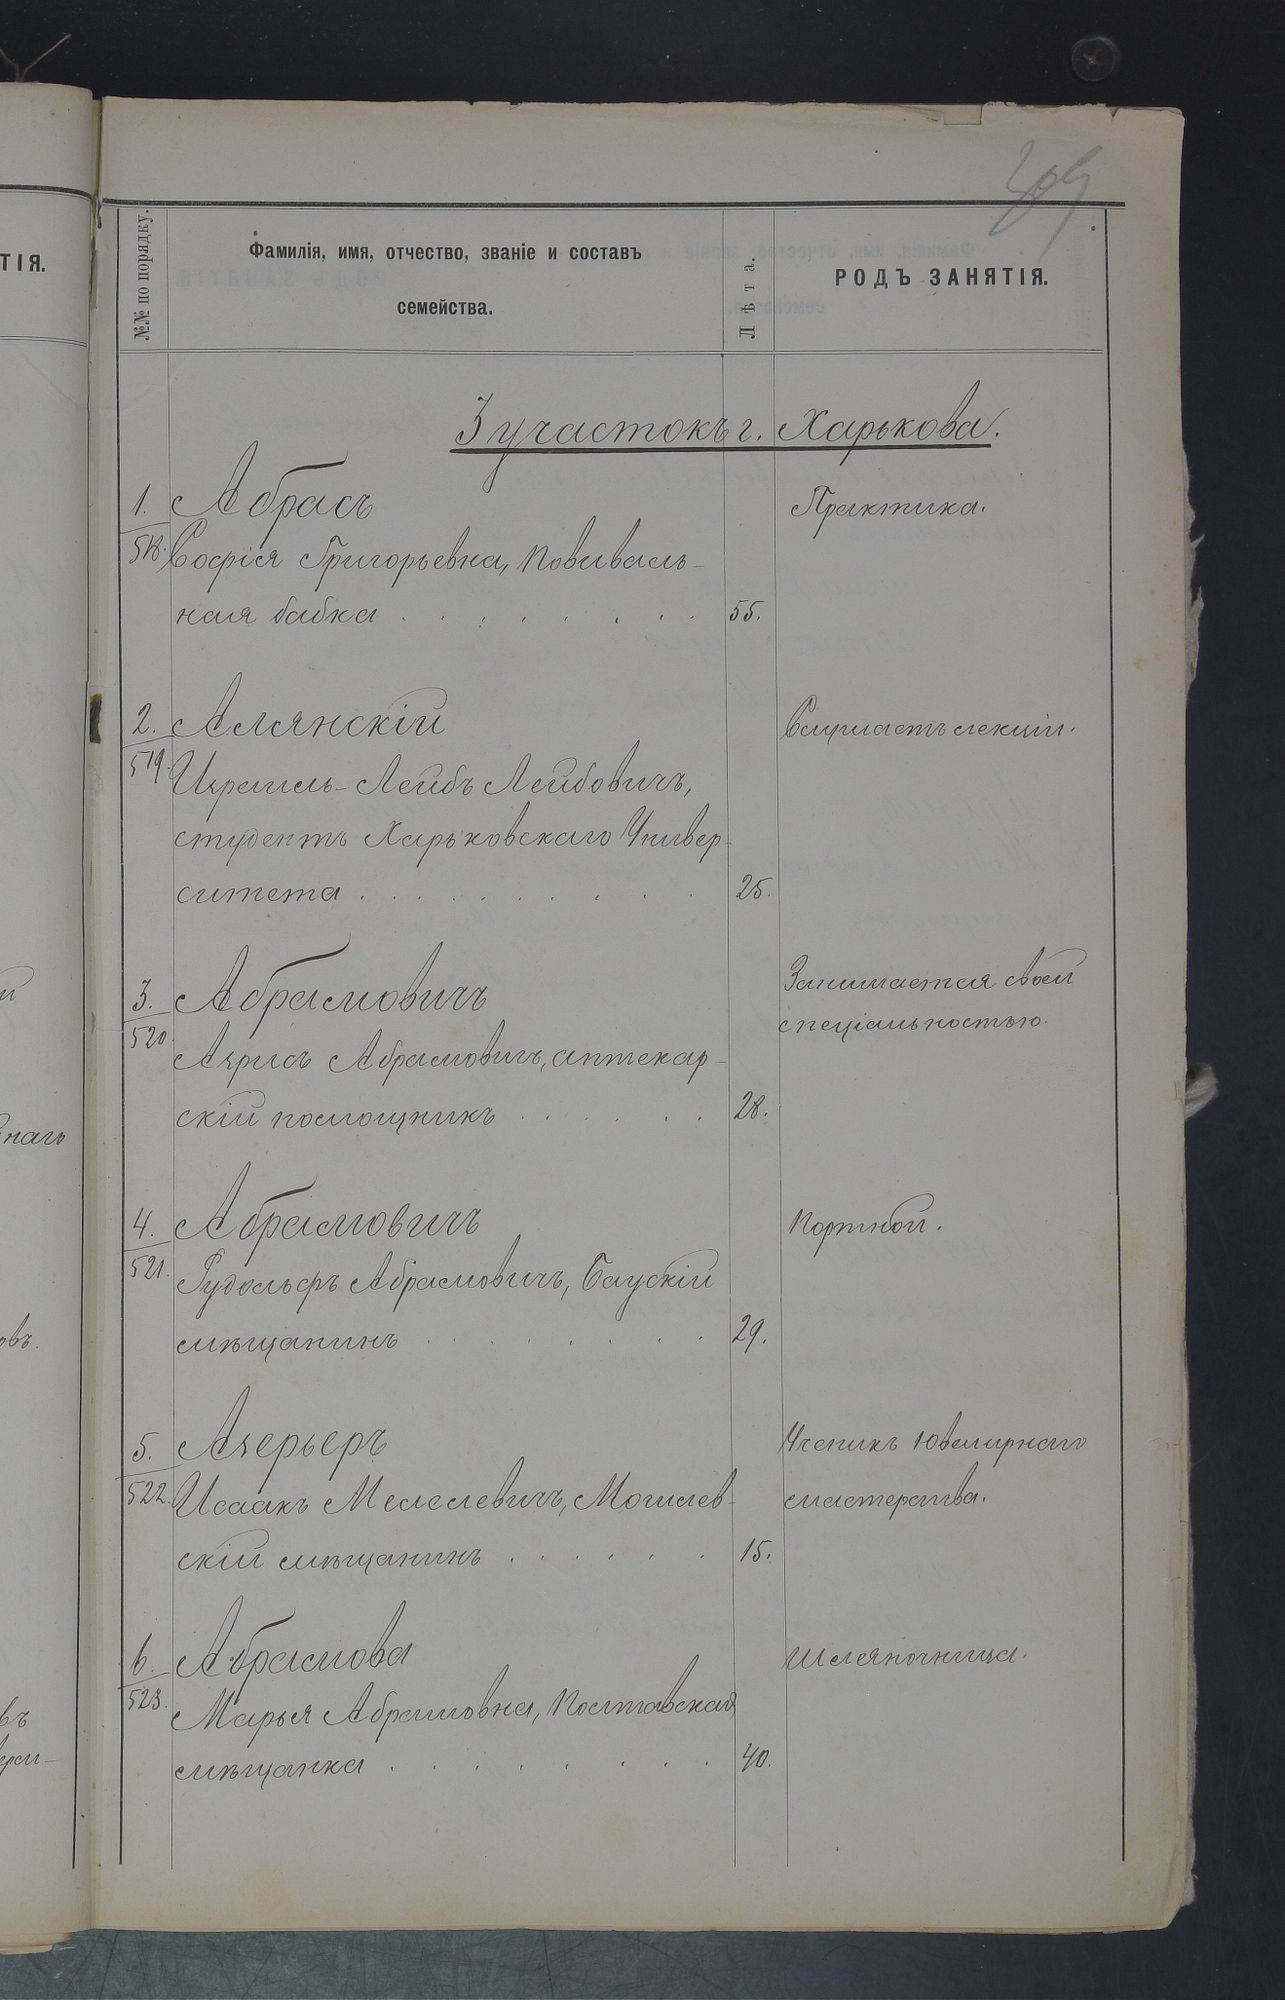 309
№№ по порядку.
Фамилія, имя, отчество, званіе и составъ
семейства.
Лѣта.
РОДЪ ЗАНЯТІЯ.
ТІЯ.
3 участокъ г. Харькова.
1. Абрасъ
Практика.
518. Софія Григорьевна, повиваль-
ная бабка . . . . . . . . 55.
2. Алянскій
Слушаетъ лекціи.
519. Израиль-Лейбъ Лейбовичъ,
студентъ Харьковскаго Универ-
ситета . . . . . . . . . 25.
3. Абрамовичъ
Занимается своей
спеціальностью.
520. Абрамовичъ, аптекар-
скій помощникъ . . . . . 28.
4. Абрамовичъ
Портной.
521. Рудольфъ Абрамовичъ, Баускій
мѣщанинъ . . . . . . . 29.
5. Азерьеръ
Ученикъ ювелирнаго
мастерства.
522. Исаакъ Могилев-
скій мѣщанинъ . . . . . 15.
6. Абрамова
Шляпочница.
523. Марья Абрамовна, Полтавская
мѣщанка . . . . . . . . 40.
наго
овъ
въ